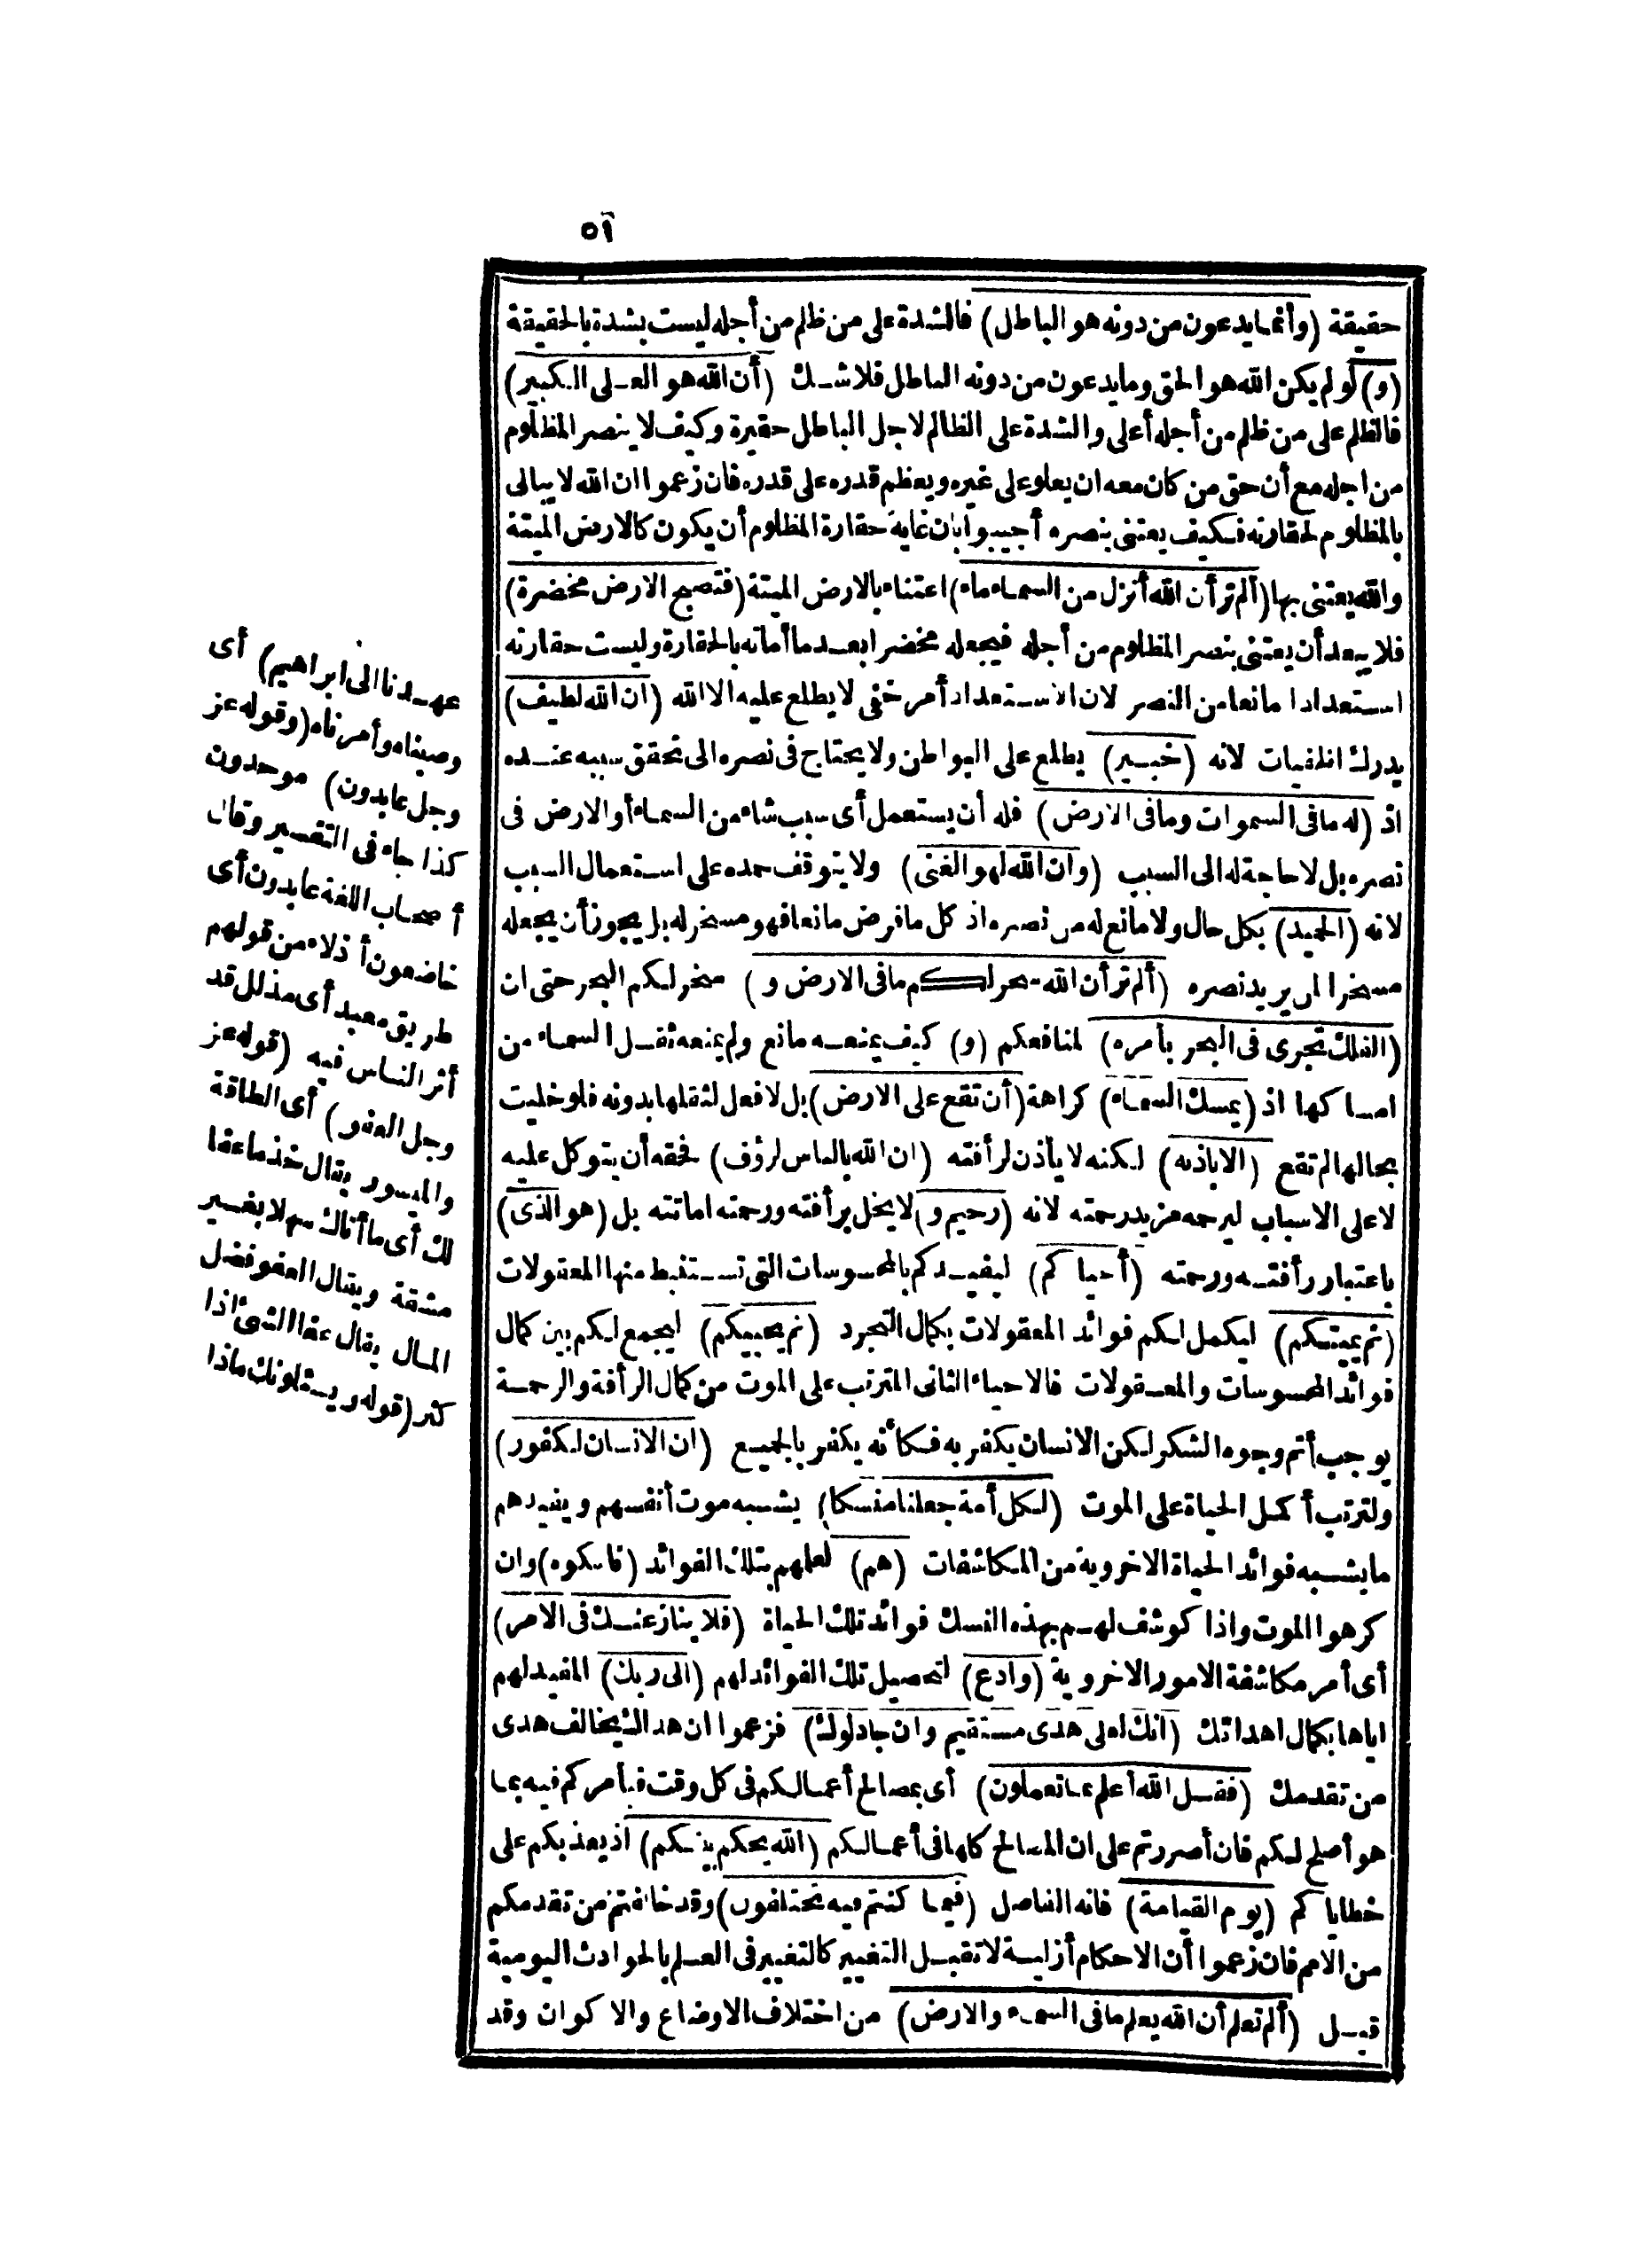 ٥٦
حقيقة (وأنما يدعون من دونه هو الباطل) فالشدة على من ظلم من أجله ليست بشدة بالحقيقة
(و) لو لم يكن الله هو الحق وما يدعون من دونه الباطل فلا شك (أن الله هو العلى الكبير)
فالظلم على من ظلم من أجله أعلى والشدة على الظالم لاجل الباطل حقيرة وكيف لا ينصر المظلوم
من اجله مع أن حق من كان معه ان يعلو على غيره ويعظم قدره على قدره فان زعموا ان الله لا يبالى
بالمظلوم لحقارته فكيف يعتنى بنصره أجيبوا بان غاية حقارة المظلوم أن يكون كالارض الميتة
والله يعتنى بها (ألم تر أن الله أنزل من السماء ماء) اعتناء بالارض الميتة (فتصبح الارض مخضرة)
فلا يبعد أن يعتنى بنصر المظلوم من أجله فيجعله مخضرا بعد ما أماته بالحقارة وليست حقارته
استعدادا مانعا من النصر لان الاستعداد أمر خفى لا يطلع عليه الا الله (ان الله لطيف)
يدرك الخفيات لانه (خبير) يطلع على البواطن ولا يحتاج فى نصره الى تحقق سببه عنده
اذ (له ما فى السموات وما فى الارض) فله أن يستعمل أى سبب شاء من السماء أو الارض فى
نصره بل لا حاجة له الى السبب (وان الله لهو الغنى) ولا يتوقف حمده على استعمال السبب
لانه (الحميد) بكل حال ولا مانع له من نصره اذ كل ما فرض مانعا فهو مسخر له بل يجوز أن يجعله
مسخرا لمن يريد نصره (ألم تر أن الله سخر لكم ما فى الارض و) سخر لكم البحر حتى ان
(الفلك تجرى فى البحر بأمره) لمنافعكم (و) كيف يمنعه مانع ولم يمنعه ثقل السماء من
امساكها اذ (يمسك السماء) كراهة (أن تقع على الارض) بل لا فعل لثقلها بدونه فلو خليت
بحالها لم تقع (الا باذنه) لكنه لا يأذن لرأفته (ان الله بالناس لرؤف) فحقه أن يتوكل عليه
لا على الاسباب ليرحمه مزيد رحمته لانه (رحيم و) لا يخل برأفته ورحمته اماتته بل (هو الذى)
باعتبار رأفته ورحمته (أحياكم) ليفيدكم بالمحسوسات التى تستنبط منها المعقولات
(ثم يميتكم) ليكمل لكم فوائد المعقولات بكمال التجرد (ثم يحييكم) ليجمع لكم بين كمال
فوائد المحسوسات والمعقولات فالاحياء الثانى المترتب على الموت من كمال الرأفة والرحمة
يوجب أتم وجوه الشكر لكن الانسان يكفر به فكأنه يكفر بالجميع (ان الانسان لكفور)
ولترتب أكمل الحياة على الموت (لكل أمة جعلنا منسكا) يشبه موت أنفسهم ويفيدهم
ما يشبه فوائد الحياة الاخروية من المكاشفات (هم) لعلمهم بتلك الفوائد (ناسكوه) وان
كرهوا الموت واذا كوشف لهم بهذه النسك فوائد تلك الحياة (فلا ينازعنك فى الامر)
أى أمر مكاشفة الامور الاخروية (وادع) لتحصيل تلك الفوائد لهم (الى ربك) المفيد لهم
اياها بكمال اهدائك (انك لعلى هدى مستقيم وان جادلوك) فزعموا ان هداك يخالف هدى
من تقدمك (فقل الله أعلم بما تعملون) أى بمصالح أعمالكم فى كل وقت فيأمركم فيه بما
هو أصلح لكم فان أصررتم على ان المصالح كلها فى أعمالكم (الله يحكم بينكم) اذ يعذبكم على
خطاياكم (يوم القيامة) فانه الفاصل (فيما كنتم فيه تختلفون) وقد خالفتم من تقدمكم
من الامم فان زعموا أن الاحكام أزلية لا تقبل التغيير كالتغيير فى العلم بالحوادث اليومية
قيل (ألم تعلم أن الله يعلم ما فى السماء والارض) من اختلاف الاوضاع والاكوان وقد
عهدنا الى ابراهيم) أى
وصيناه وأمرناه (وقوله عز
وجل عابدون) موحدون
كذا جاء فى التفسير وقال
أصحاب اللغة عابدون أى
خاضعون أذلاء من قولهم
طريق معبد أى مذلل قد
أثر الناس فيه (قوله عز
وجل العفو) أى الطاقة
والميسور يقال خذ ما عفا
لك أى ما أتاك سهلا بغير
مشقة ويقال العفو فضل
المال يقال عفا الشئ اذا
كثر (قوله ويسئلونك ماذا